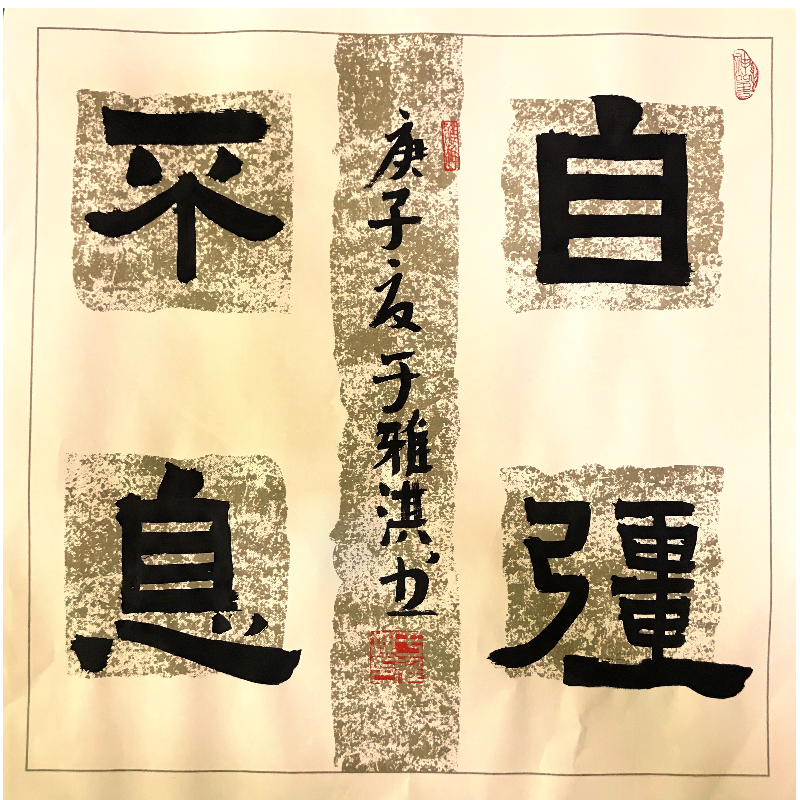 自彊
不息
庚子夏于雅淇书